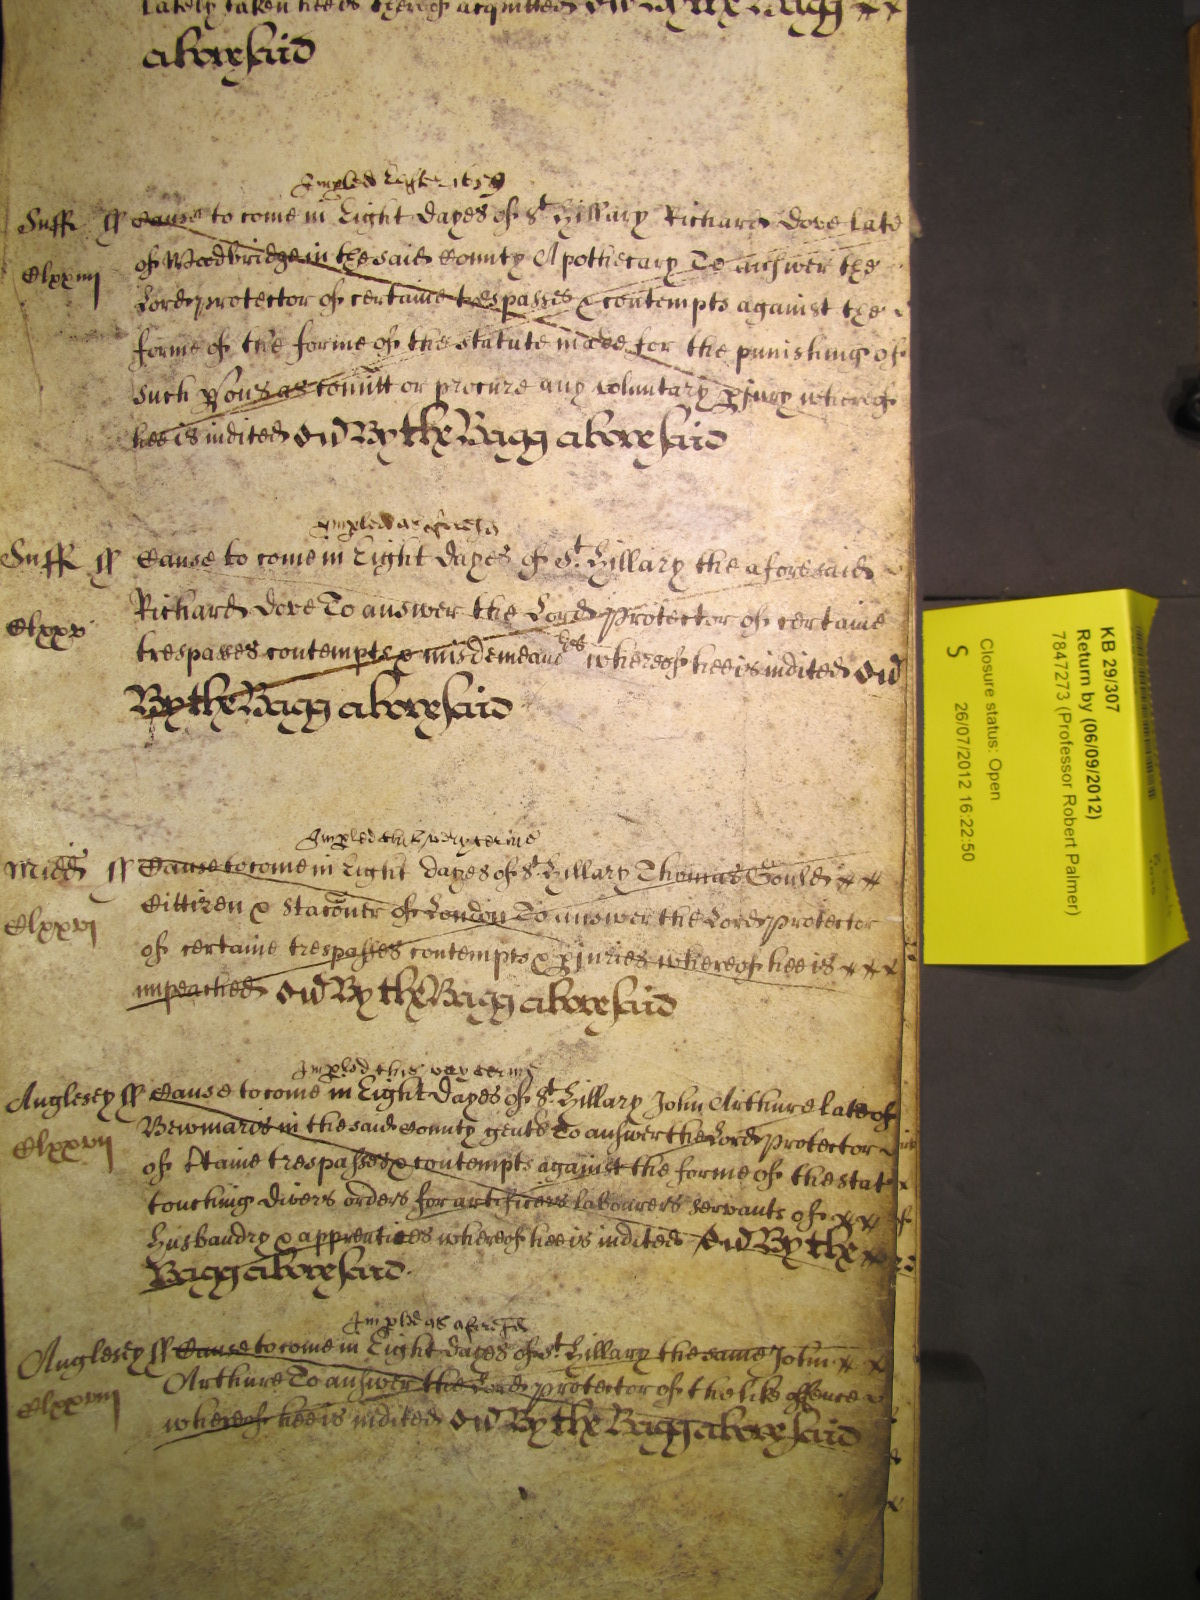 lately taken hee is thereof acquitted By
abovesaid
Impled Easter 1659
Suff ss Cause to come in Eight dayes of St. Hillary Richard Dove late
Clxxiiij of Woodbridge in the said County Apothecary To answer the
Lord protector of certaine trespasses & contempts against the
forme of the forme of the statute made for the punishing of
such psons as comitt or procure any voluntary pjury whereof
hee is indited By the Bagg abovesaid
Impled as aforesd
Suff ss Cause to come in Eight dayes of St. Hillary the aforesaid
Clxxv Richard Dove To answer the Lord Protector of certaine
trespasses contempts & misdemeanors whereof hee is indited
By the Bagg abovesaid
Impled this very terme
Midd ss Cause to come in Eight dayes of St. Hillary Thomas Gould
Clxxvj Cittizen & Staconer of London To answer the Lord protector
of certaine trespasses contempts & pjuries whereof hee is
impeached By the Bagg abovesaid
Impled this very terme
Anglesey ss Cause to come in Eight dayes of St. Hillary John Arthure late of
Clxxvij Bewmaris in the said County gent To answer the Lord Protector
of Ctaine trespasses & contempts against the forme of the stat
touching divers orders for artificers labourers servants of
Husbandry & apprentices whereof hee is indited By the
Bagg abovesaid.
Impled as aforesd
Anglesey ss Cause to come in Eight dayes of St. Hillary the same John
Clxxviij Arthure To answer the Lord protector of the like offence
whereof hee is indited By the Bagg abovesaid
KB 29/307
Return by (06/09/2012)
7847273 (Professor Robert Palmer)
Closure status: Open
S 26/07/2012 16:22:50